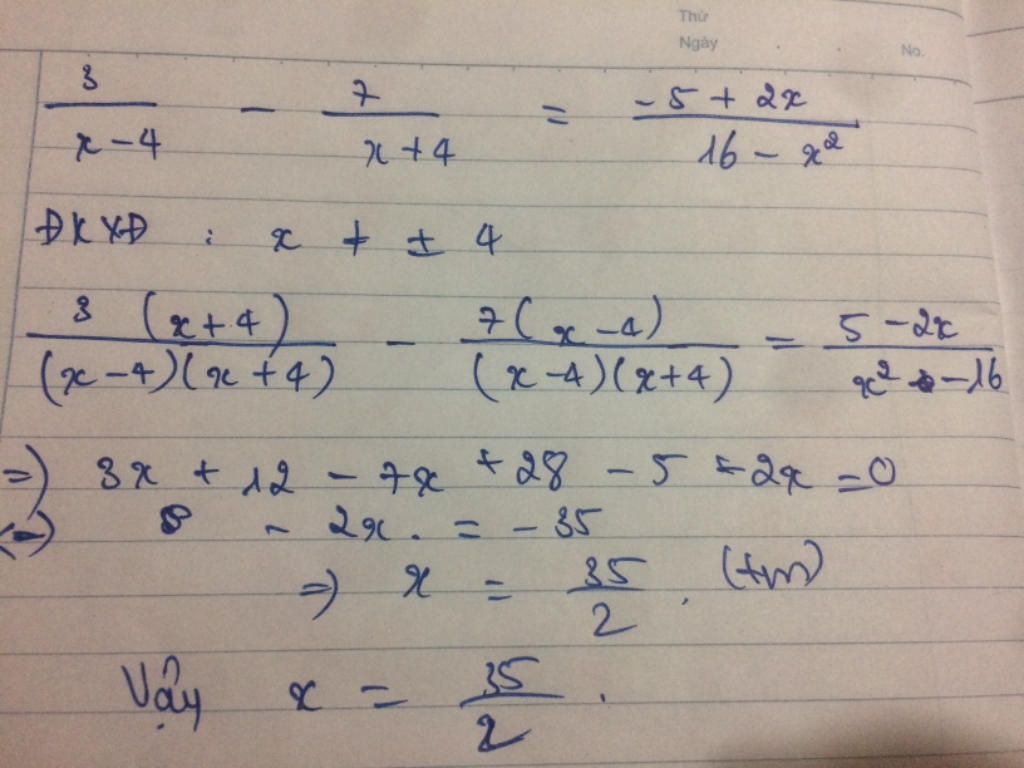 Thứ
Ngày No.
3/(x-4) - 7/(x+4) = (-5+2x)/(16-x²)
ĐKXĐ : x ≠ ± 4
3(x+4)/((x-4)(x+4)) - 7(x-4)/((x-4)(x+4)) = (5-2x)/(x²-16)
=> 3x + 12 - 7x + 28 - 5 + 2x = 0
<=> - 2x = -35
=> x = 35/2. (tm)
Vậy x = 35/2.